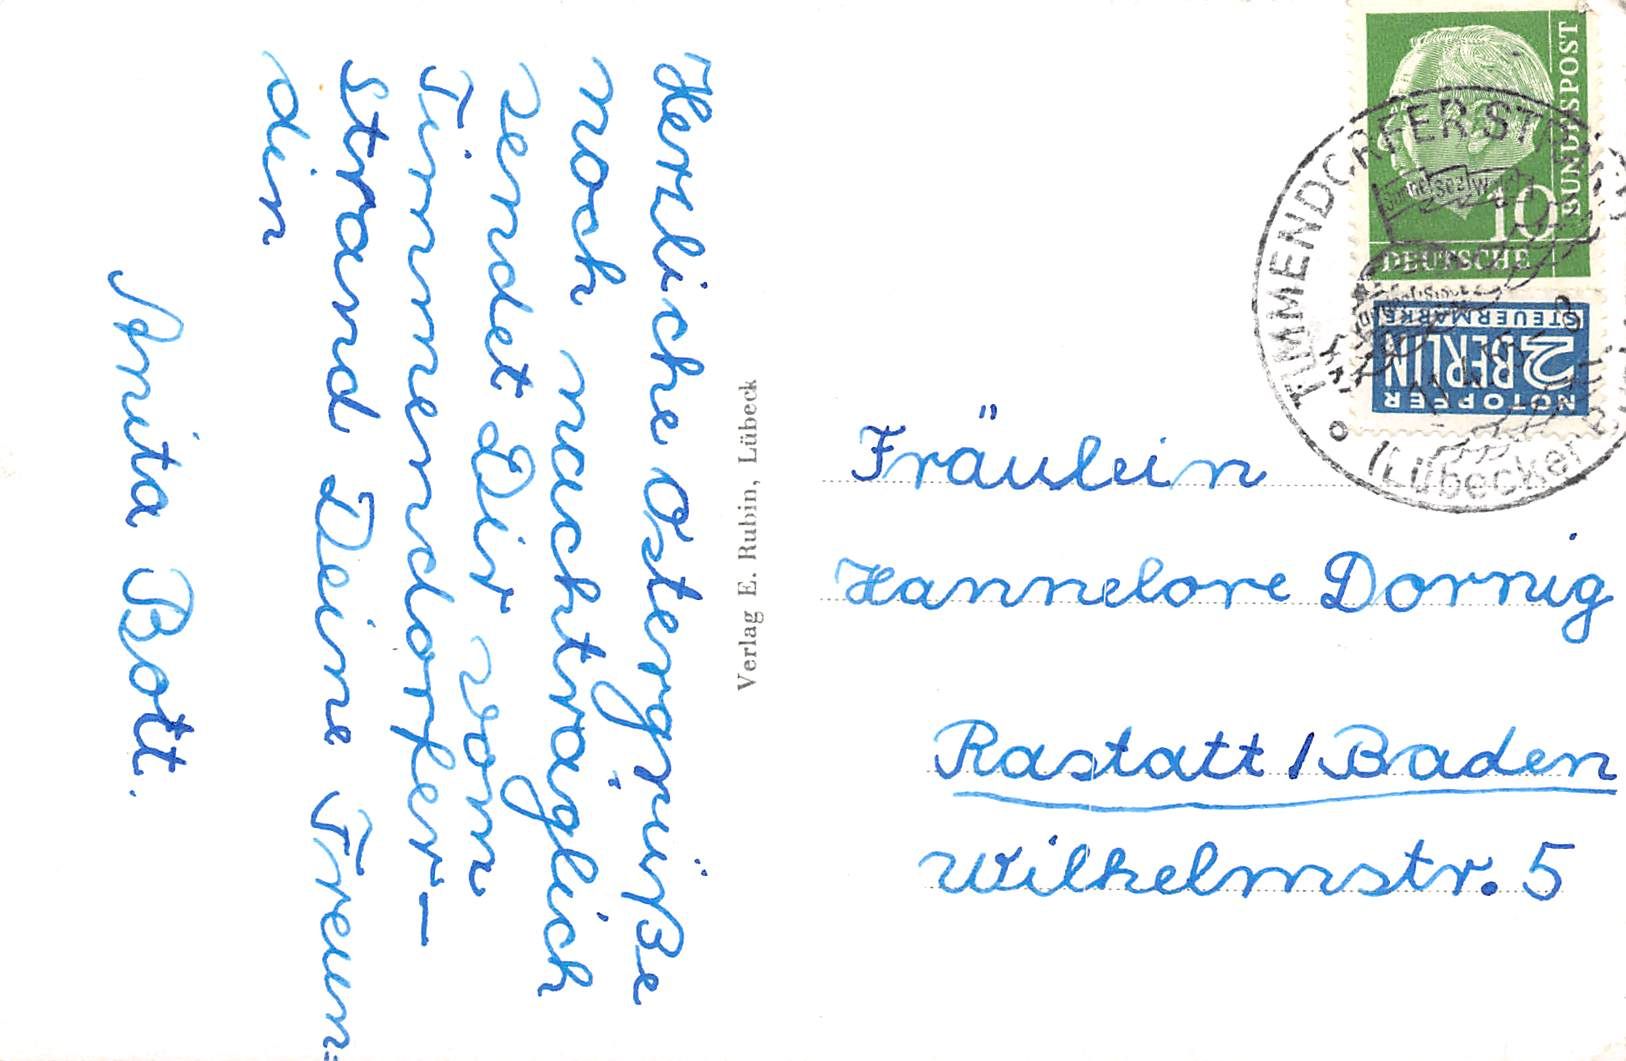 Herzliche Ostergrüße
noch nachträglich
sendet Dir vom
Timmendorfer-
Strand Deine Freun=
din
Anita Bott.
Verlag E. Rubin, Lübeck
Fräulein
Hannelore Dornig
Rastatt / Baden
Wilhelmstr. 5
10
DEUTSCHE
BUNDESPOST
NOTOPFER
2 BERLIN
STEUERMARKE
TIMMENDORFER STRAND
(Lübecker